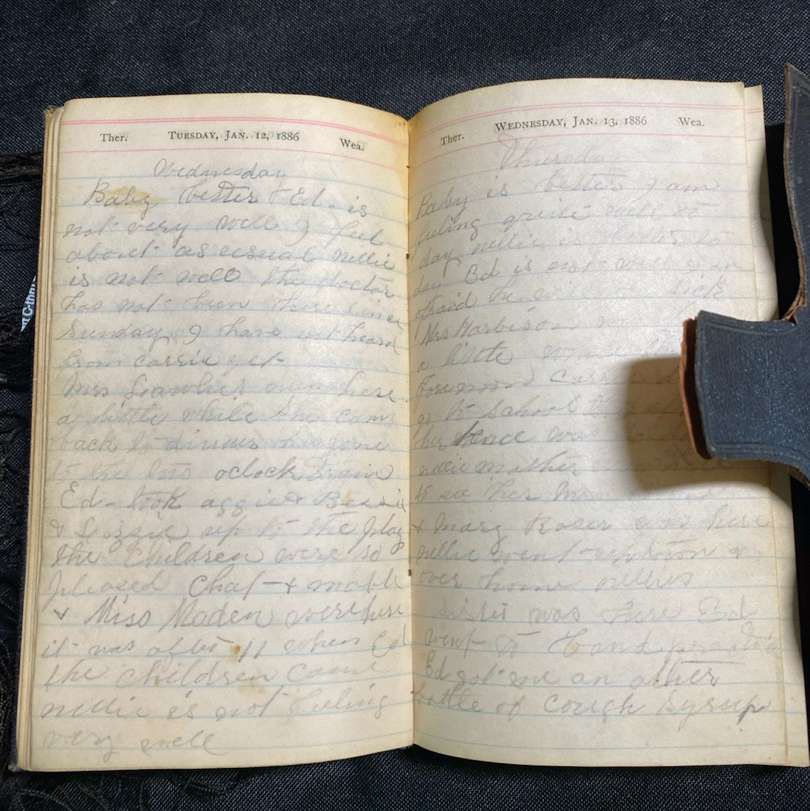 Ther. TUESDAY, JAN. 12, 1886 Wea.
Wednesday
Baby better Ed is
not very well I feel
about as usual nellie
is not well the doctor
has not been here since
Sunday I have not heard
from Cassie yet
Mrs over here
a little while she came
back to dinner
to the two oclock train
Ed took aggie & Bessie
& Lizzie up to the play
the Children were so
pleased Chat & mable
& Miss Maden were here
it was after 11 when Ed
the children came
nellie is not feeling
very well
Ther. WEDNESDAY, JAN. 13, 1886 Wea.
Thursday
Baby is better I am
feling quite well to
day nellie is better to
day Ed is not well I am
afraid he will be sick
Mrs Harbison
a little
to School
her
nellie mother
to see her
& Mary Roser was here
nellie went uptown &
over home nellies
Sister was here Ed
went to Band practice
Ed got me an other
bottle of Cough Syrup